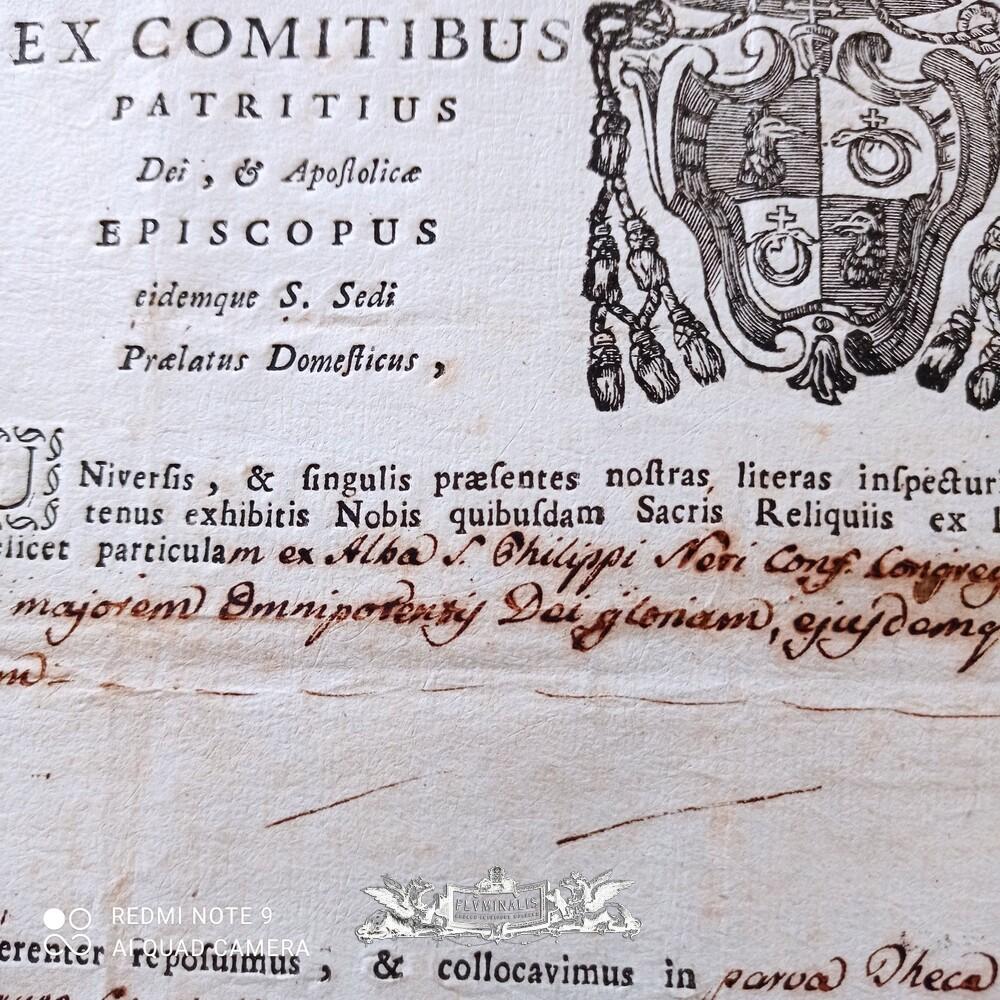 EX COMITIBUS
PATRITIUS
Dei, & Apoſtolicæ
EPISCOPUS
eidemque S. Sedi
Prælatus Domeſticus,
UNiverſis, & ſingulis præſentes noſtras literas inſpectur
tenus exhibitis Nobis quibuſdam Sacris Reliquiis ex
elicet particulam ex Alba S. Philippi Neri Conf. Congreg
majorem Omnipotentis Dei gloriam, ejuſdemq
m
erenter repoſuimus, & collocavimus in parva Theca
FLVMINALIS
REDMI NOTE 9
AI QUAD CAMERA